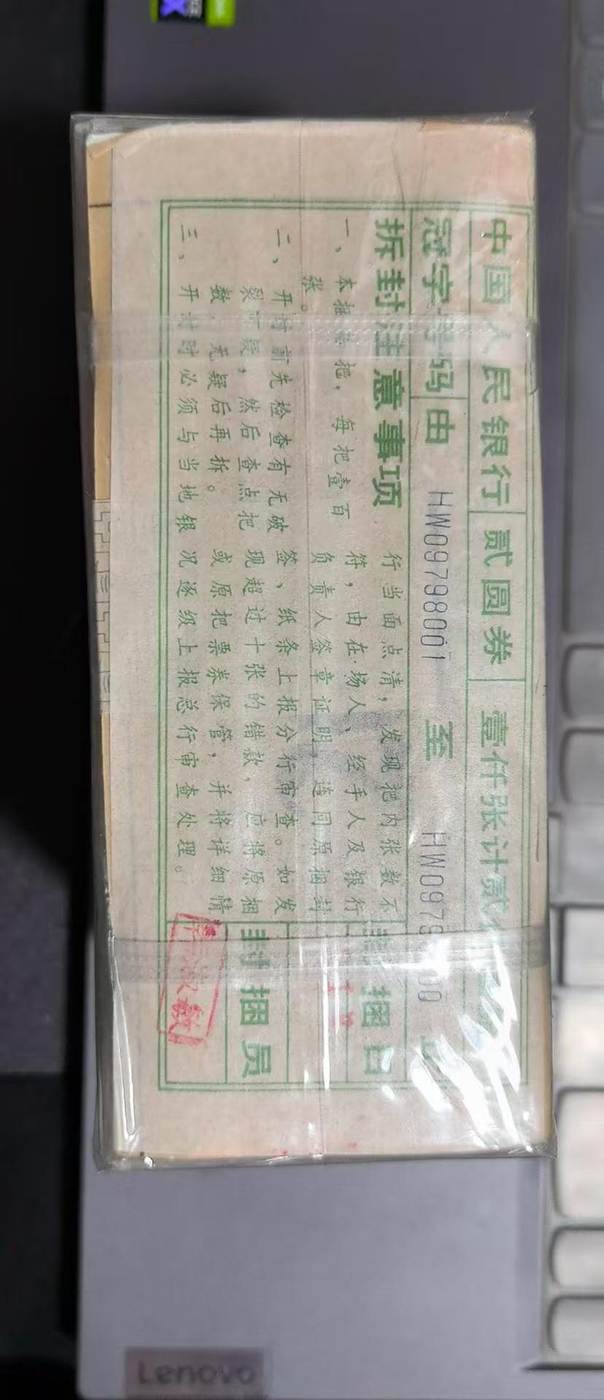 中国人民银行 贰圆券 壹仟张计贰
冠字号码由 HW09798001 至 HW0979
拆封注意事项
一、本捆拾把,每把壹百
张。
二、开封前先检查有无破
裂可疑,然后查点把
数,无疑后再拆。
三、开封时必须与当地银
行当面点清,发现把内张数不
符,由在场人、经手人及银行
负责人签章证明,连同原捆封
签、纸条上报分行审查。如发
现超过十张的错款,应将原捆
或原把票券保管,并将详细情
况逐级上报总行审查处理。
封捆日
封捆员
Lenovo